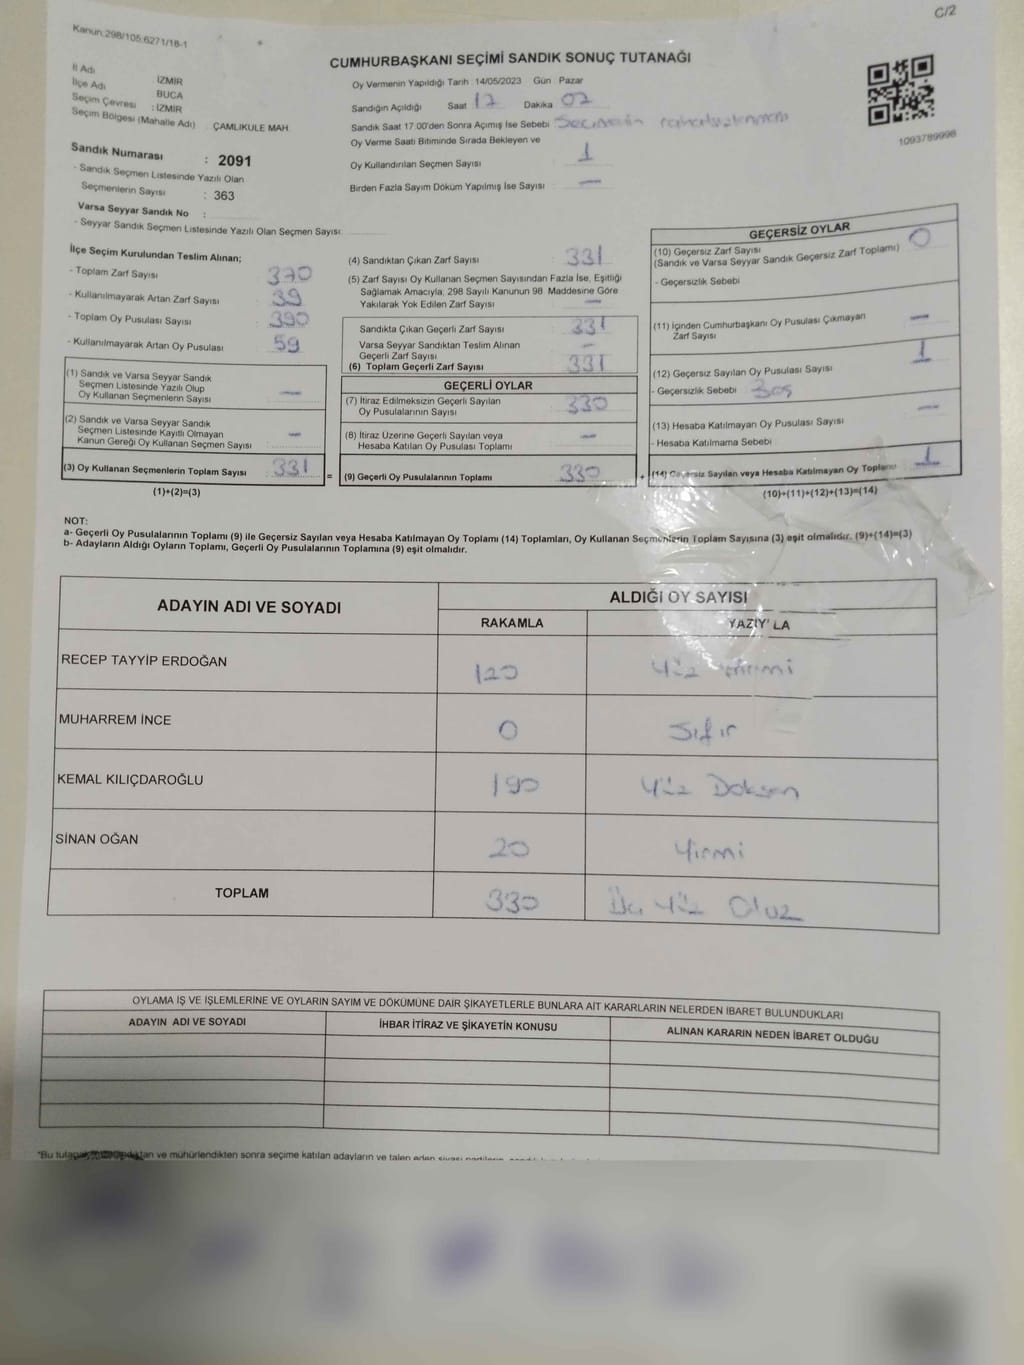 Kanun:298/105:6271/18-1
C/2
CUMHURBAŞKANI SEÇİMİ SANDIK SONUÇ TUTANAĞI
İl Adı : İZMİR
İlçe Adı BUCA
Seçim Çevresi : İZMİR
Seçim Bölgesi (Mahalle Adı) ÇAMLIKULE MAH.
Sandık Numarası : 2091
- Sandık Seçmen Listesinde Yazılı Olan
Seçmenlerin Sayısı : 363
Varsa Seyyar Sandık No :
- Seyyar Sandık Seçmen Listesinde Yazılı Olan Seçmen Sayısı:
Oy Vermenin Yapıldığı Tarih : 14/05/2023 Gün Pazar
Sandığın Açıldığı Saat 17 Dakika 02
Sandık Saat 17:00'den Sonra Açımış İse Sebebi
Oy Verme Saati Bitiminde Sırada Bekleyen ve
Oy Kullandırılan Seçmen Sayısı 1
Birden Fazla Sayım Döküm Yapılmış İse Sayısı —
1093789998
İlçe Seçim Kurulundan Teslim Alınan;
- Toplam Zarf Sayısı : 370
- Kullanılmayarak Artan Zarf Sayısı : 39
- Toplam Oy Pusulası Sayısı : 390
- Kullanılmayarak Artan Oy Pusulası : 59
(1) Sandık ve Varsa Seyyar Sandık
Seçmen Listesinde Yazılı Olup
Oy Kullanan Seçmenlerin Sayısı : —
(2) Sandık ve Varsa Seyyar Sandık
Seçmen Listesinde Kayıtlı Olmayan
Kanun Gereği Oy Kullanan Seçmen Sayısı —
(3) Oy Kullanan Seçmenlerin Toplam Sayısı : 331
(1)+(2)=(3)
=
(4) Sandıktan Çıkan Zarf Sayısı : 331
(5) Zarf Sayısı Oy Kullanan Seçmen Sayısından Fazla İse, Eşitliği
Sağlamak Amacıyla, 298 Sayılı Kanunun 98. Maddesine Göre
Yakılarak Yok Edilen Zarf Sayısı : —
Sandıkta Çıkan Geçerli Zarf Sayısı : 331
Varsa Seyyar Sandıktan Teslim Alınan
Geçerli Zarf Sayısı : —
(6) Toplam Geçerli Zarf Sayısı : 331
GEÇERLİ OYLAR
(7) İtiraz Edilmeksizin Geçerli Sayılan
Oy Pusulalarının Sayısı : 330
(8) İtiraz Üzerine Geçerli Sayılan veya
Hesaba Katılan Oy Pusulası Toplamı : —
(9) Geçerli Oy Pusulalarının Toplamı : 330
+
GEÇERSİZ OYLAR
(10) Geçersiz Zarf Sayısı
(Sandık ve Varsa Seyyar Sandık Geçersiz Zarf Toplamı) 0
- Geçersizlik Sebebi
(11) İçinden Cumhurbaşkanı Oy Pusulası Çıkmayan
Zarf Sayısı : —
(12) Geçersiz Sayılan Oy Pusulası Sayısı : 1
- Geçersizlik Sebebi
(13) Hesaba Katılmayan Oy Pusulası Sayısı : —
- Hesaba Katılmama Sebebi
(14) Geçersiz Sayılan veya Hesaba Katılmayan Oy Toplamı 1
(10)+(11)+(12)+(13)=(14)
NOT:
a- Geçerli Oy Pusulalarının Toplamı (9) ile Geçersiz Sayılan veya Hesaba Katılmayan Oy Toplamı (14) Toplamları, Oy Kullanan Seçmenlerin Toplam Sayısına (3) eşit olmalıdır. (9)+(14)=(3)
b- Adayların Aldığı Oyların Toplamı, Geçerli Oy Pusulalarının Toplamına (9) eşit olmalıdır.
ADAYIN ADI VE SOYADI ALDIĞI OY SAYISI
RAKAMLA YAZIY' LA
RECEP TAYYİP ERDOĞAN 120 Yüz Yirmi
MUHARREM İNCE 0 Sıfır
KEMAL KILIÇDAROĞLU 190 Yüz Doksan
SİNAN OĞAN 20 Yirmi
TOPLAM 330 Üç Yüz Otuz
OYLAMA İŞ VE İŞLEMLERİNE VE OYLARIN SAYIM VE DÖKÜMÜNE DAİR ŞİKAYETLERLE BUNLARA AİT KARARLARIN NELERDEN İBARET BULUNDUKLARI
ADAYIN ADI VE SOYADI İHBAR İTİRAZ VE ŞİKAYETİN KONUSU ALINAN KARARIN NEDEN İBARET OLDUĞU
ve mühürlendikten sonra seçime katılan adayların ve talep eden siyasi partilerin